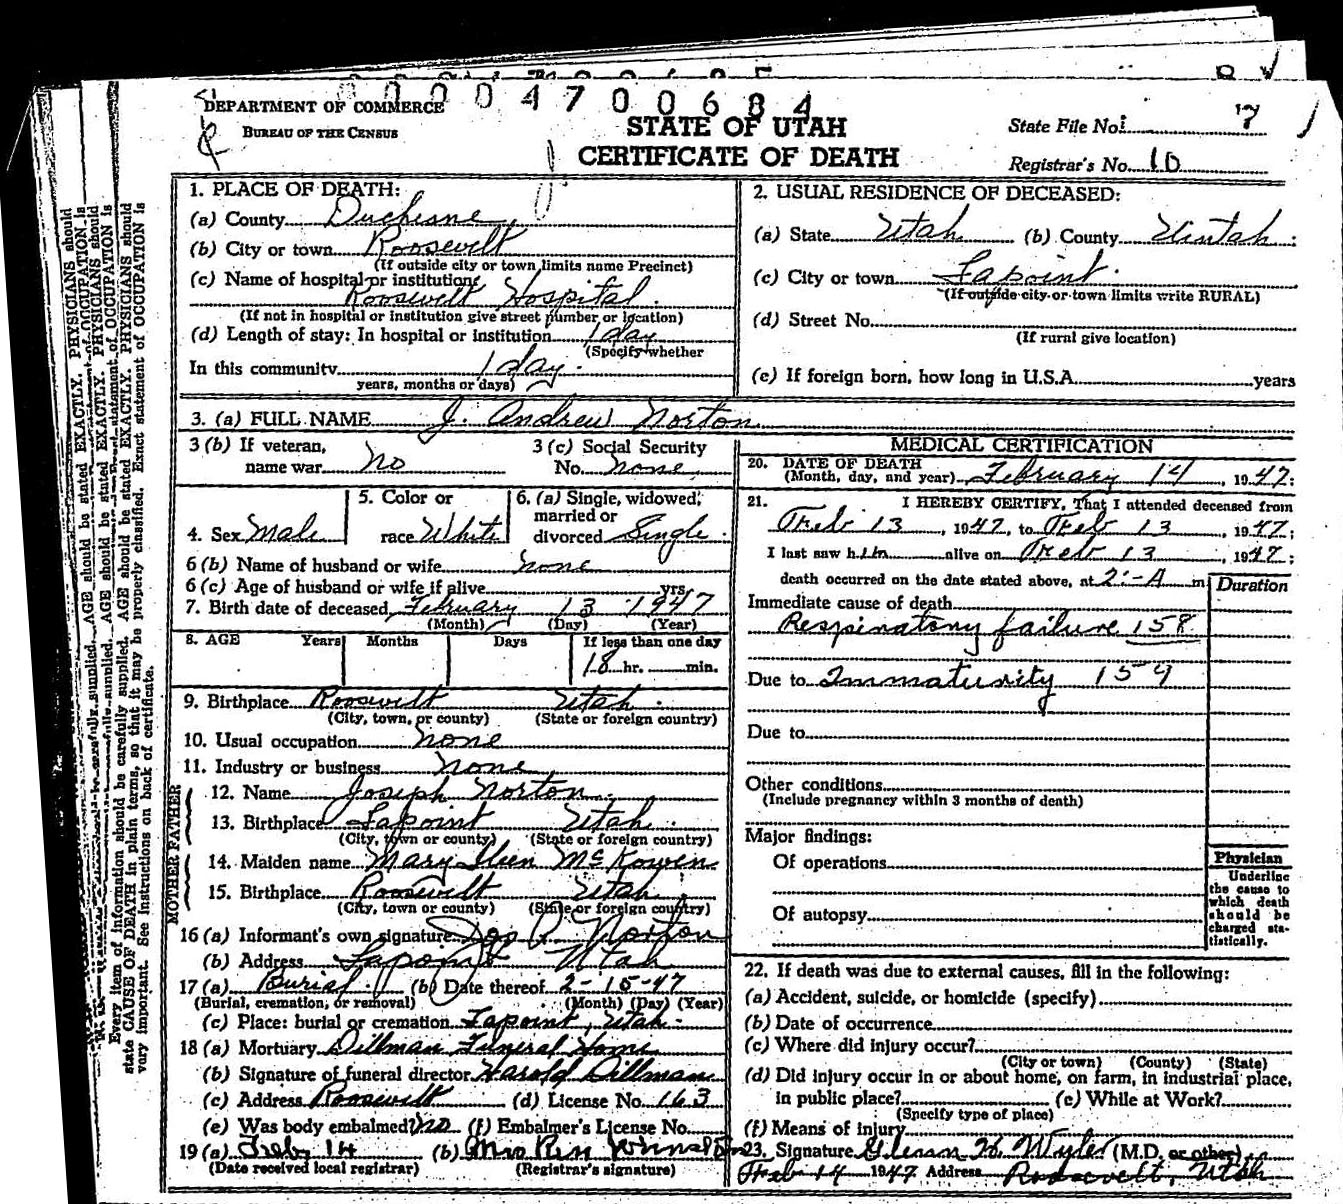 0 0 0 0 4 7 0 0 6 8 4
DEPARTMENT OF COMMERCE
BUREAU OF THE CENSUS
STATE OF UTAH
CERTIFICATE OF DEATH
State File No. 7
Registrar's No. 10
1. PLACE OF DEATH:
(a) County Duchesne
(b) City or town Roosevelt
(If outside city or town limits name Precinct)
(c) Name of hospital or institution:
Roosevelt Hospital
(If not in hospital or institution give street number or location)
(d) Length of stay: In hospital or institution 1 day
(Specify whether
In this community 1 day
years, months or days)
2. USUAL RESIDENCE OF DECEASED:
(a) State Utah (b) County Uintah
(c) City or town Lapoint
(If outside city or town limits write RURAL)
(d) Street No.
(If rural give location)
(e) If foreign born, how long in U.S.A. years
3. (a) FULL NAME J. Andrew Norton
3 (b) If veteran, name war no
3 (c) Social Security No. none
4. Sex Male
5. Color or race White
6. (a) Single, widowed, married or divorced Single
6 (b) Name of husband or wife none
6 (c) Age of husband or wife if alive yrs.
7. Birth date of deceased February 13 1947
(Month) (Day) (Year)
8. AGE Years Months Days If less than one day
18 hr. min.
9. Birthplace Roosevelt Utah
(City, town, or county) (State or foreign country)
10. Usual occupation none
11. Industry or business none
FATHER
12. Name Joseph Norton
13. Birthplace Lapoint Utah
(City, town or county) (State or foreign country)
MOTHER
14. Maiden name Mary McKowen
15. Birthplace Roosevelt Utah
(City, town or county) (State or foreign country)
16 (a) Informant's own signature Jos R. Norton
(b) Address Lapoint Utah
17 (a) Burial (b) Date thereof 2-15-47
(Burial, cremation, or removal) (Month) (Day) (Year)
(c) Place: burial or cremation Lapoint, Utah
18 (a) Mortuary Dillman Funeral Home
(b) Signature of funeral director Harold Dillman
(c) Address Roosevelt (d) License No. 163
(e) Was body embalmed? no (f) Embalmer's License No.
19 (a) Feb 14 (b) Mrs
(Date received local registrar) (Registrar's signature)
MEDICAL CERTIFICATION
20. DATE OF DEATH
(Month, day, and year) February 14, 1947:
21. I HEREBY CERTIFY, That I attended deceased from
Feb 13, 1947, to Feb 13, 1947;
I last saw him alive on Feb 13, 1947;
death occurred on the date stated above, at 2:-A m
Duration
Immediate cause of death
Respiratory failure 158
Due to Immaturity 159
Due to
Other conditions
(Include pregnancy within 3 months of death)
Major findings:
Of operations
Of autopsy
Physician
Underline
the cause to
which death
should be
charged sta-
tistically.
22. If death was due to external causes, fill in the following:
(a) Accident, suicide, or homicide (specify)
(b) Date of occurrence
(c) Where did injury occur?
(City or town) (County) (State)
(d) Did injury occur in or about home, on farm, in industrial place,
in public place? (e) While at Work?
(Specify type of place)
(f) Means of injury
23. Signature (M.D. or other)
Feb 14 1947 Address Roosevelt, Utah
Every item of information should be carefully supplied. AGE should be stated EXACTLY. PHYSICIANS should
state CAUSE OF DEATH in plain terms, so that it may be properly classified. Exact statement of OCCUPATION is
very important. See instructions on back of certificate.